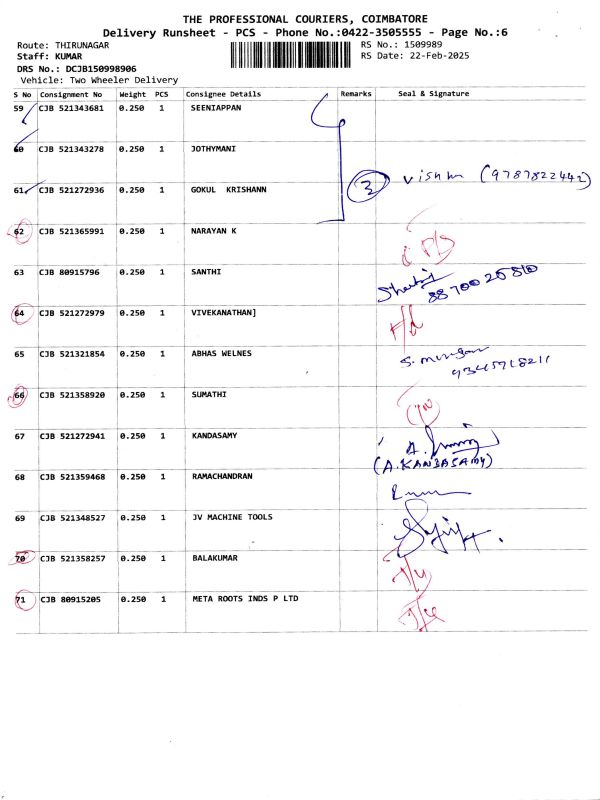 THE PROFESSIONAL COURIERS, COIMBATORE
Delivery Runsheet - PCS - Phone No.:0422-3505555 - Page No.:6
Route: THIRUNAGAR
RS No.: 1509989
Staff: KUMAR
RS Date: 22-Feb-2025
DRS No.: DCJB150998906
Vehicle: Two Wheeler Delivery
S No Consignment No Weight PCS Consignee Details Remarks Seal & Signature
59 CJB 521343681 0.250 1 SEENIAPPAN
60 CJB 521343278 0.250 1 JOTHYMANI
61 CJB 521272936 0.250 1 GOKUL KRISHANN 3 (9787822442)
62 CJB 521365991 0.250 1 NARAYAN K
63 CJB 80915796 0.250 1 SANTHI 88700 25810
64 CJB 521272979 0.250 1 VIVEKANATHAN]
65 CJB 521321854 0.250 1 ABHAS WELNES S. murugan
9345718211
66 CJB 521358920 0.250 1 SUMATHI
67 CJB 521272941 0.250 1 KANDASAMY
(A.KANDASAMY)
68 CJB 521359468 0.250 1 RAMACHANDRAN
69 CJB 521348527 0.250 1 JV MACHINE TOOLS
70 CJB 521358257 0.250 1 BALAKUMAR
71 CJB 80915205 0.250 1 META ROOTS INDS P LTD